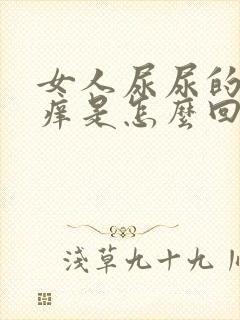 女人尿尿的
痒是怎麼回
淺草九十九